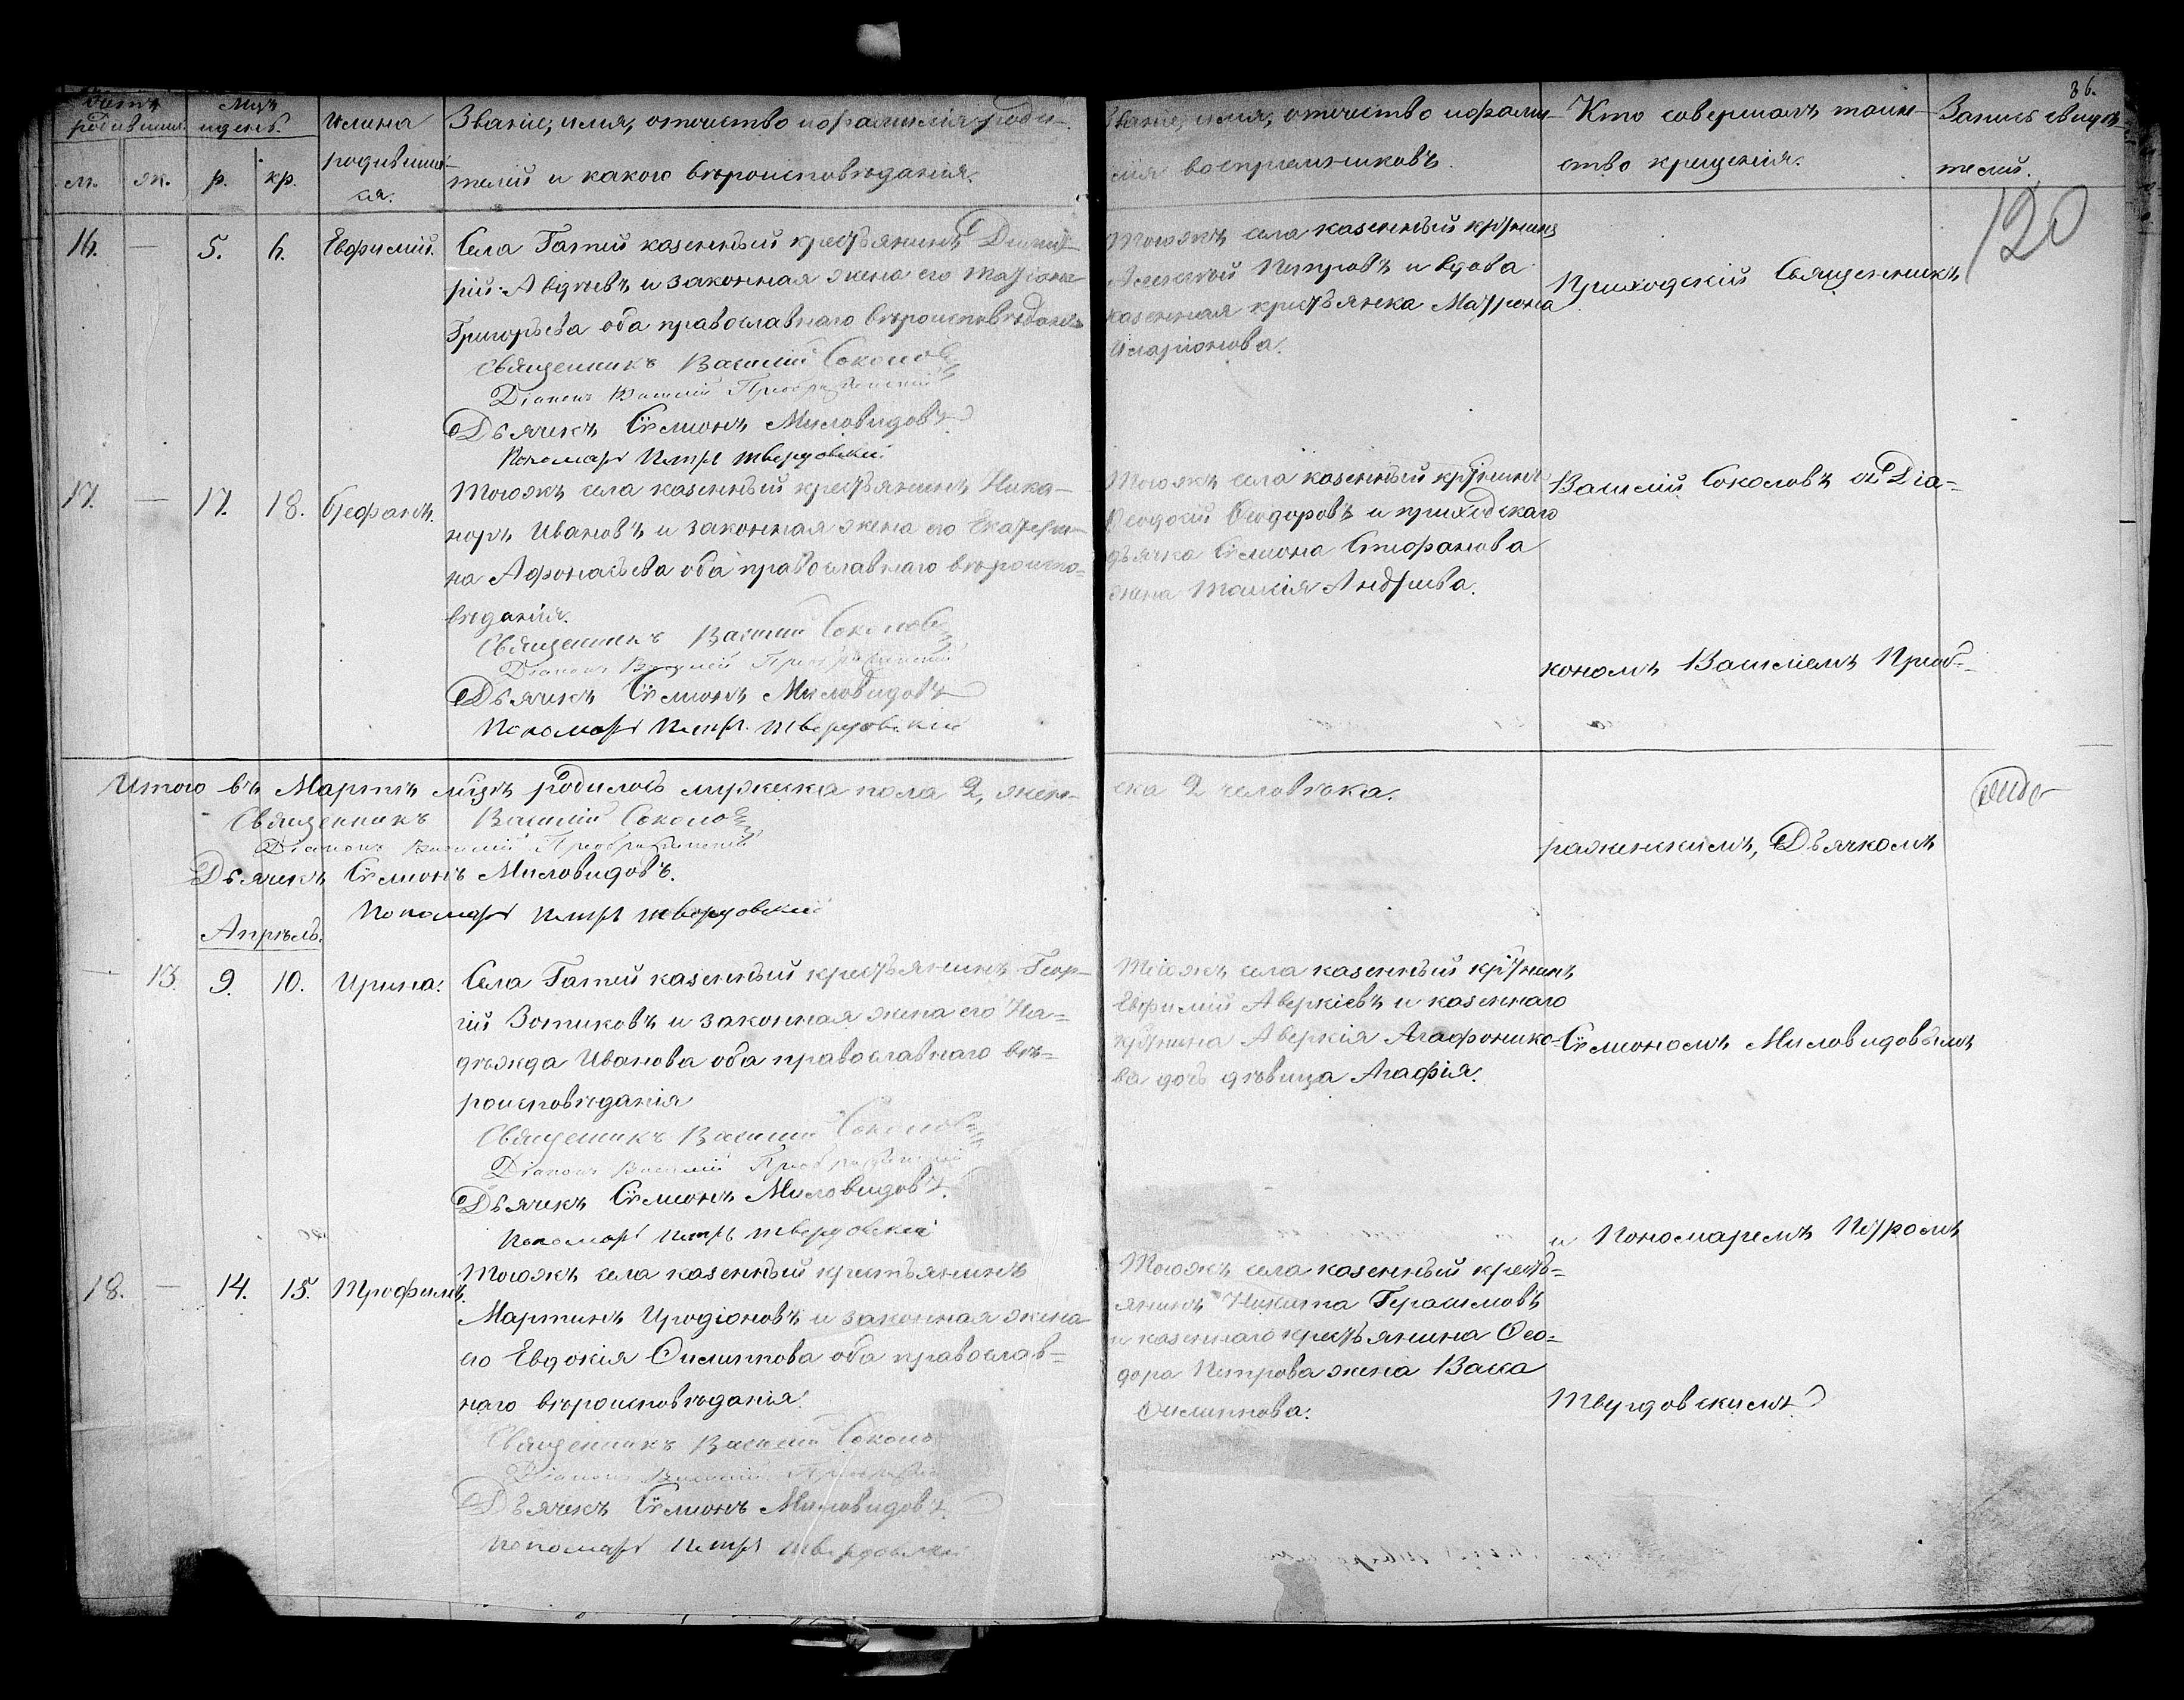 36.
120
Счетъ родившихся.
Мцъ и день.
м. ж. р. кр.
Имена
родивших-
ся.
Званіе, имя, отчество и фамилія роди-
телей и какого вѣроисповѣданія.
Званіе, имя, отчество и фами-
лія воспріемниковъ.
Кто совершалъ таин-
ство крещенія.
Запись свидѣ-
телей.
16. — 5. 6. Евфимій.
Села Гатей казенный крестьянинъ Димит-
рій Авдѣевъ и законная жена его Матрона
Григорьева оба православнаго вѣроисповѣданія
Священникъ Василій Соколовъ
Діаконъ Василій Преображенскій
Дьячекъ Симіонъ Миловидовъ
Пономарь Петръ Твердовскій
Тогожъ села казенный кр-тнинъ
Алексѣй Петровъ и вдова
казенная крестьянка Матрона
Иларіонова.
17. — 17. 18. Стефанъ.
Тогожъ села казенный крестьянинъ Ника-
норъ Ивановъ и законная жена его Екатери-
на Афонасьева оба православнаго вѣроиспо-
вѣданія.
Священникъ Василій Соколовъ
Діаконъ Василій Преображенскій
Дьячекъ Симіонъ Миловидовъ
Пономарь Петръ Твердовскій
Тогожъ села казенный кр-тнинъ
Ѳеодосій Ѳеодоровъ и приходскаго
дьячка Симіона Стефанова
жена Таисія Андреева.
Итого въ Мартѣ мцѣ родилось мужска пола 2, жен-
ска 2 человѣка.
Священникъ Василій Соколовъ
Діаконъ Василій Преображенскій
Дьячекъ Симіонъ Миловидовъ.
Пономарь Петръ Твердовскій
Апрѣль.
— 13. 9. 10. Ирина.
Села Гатей казенный крестьянинъ Геор-
гій Зотиковъ и законная жена его На-
дѣжда Иванова оба православнаго вѣ-
роисповѣданія
Священникъ Василій Соколовъ
Діаконъ Василій Преображенскій
Дьячекъ Симіонъ Миловидовъ.
Пономарь Петръ Твердовскій
Тогожъ села казенный кр-тнинъ
Евфимій Аверкіевъ и казеннаго
кр-тнина Аверкія Агафонико-
ва дочь дѣвица Агафія.
18. — 14. 15. Трофимъ.
Тогожъ села казенный крестьянинъ
Мартинъ Иродіоновъ и законная жена
его Евдокія Филиппова оба православ-
наго вѣроисповѣданія.
Священникъ Василій Соколо
Діаконъ Василій Преображен
Дьячекъ Симіонъ Миловидовъ.
Пономарь Петръ Твердовскій
Тогожъ села казенный кресть-
янинъ Никита Герасимовъ
и казеннаго крестьянина Ѳео-
дора Петрова жена Васса
Филиппова.
Приходскій Священникъ
Василій Соколовъ съ Діа-
кономъ Василіемъ Преоб-
раженскимъ, Дьячкомъ
Симіономъ Миловидовымъ
и Пономаремъ Петромъ
Твердовскимъ.